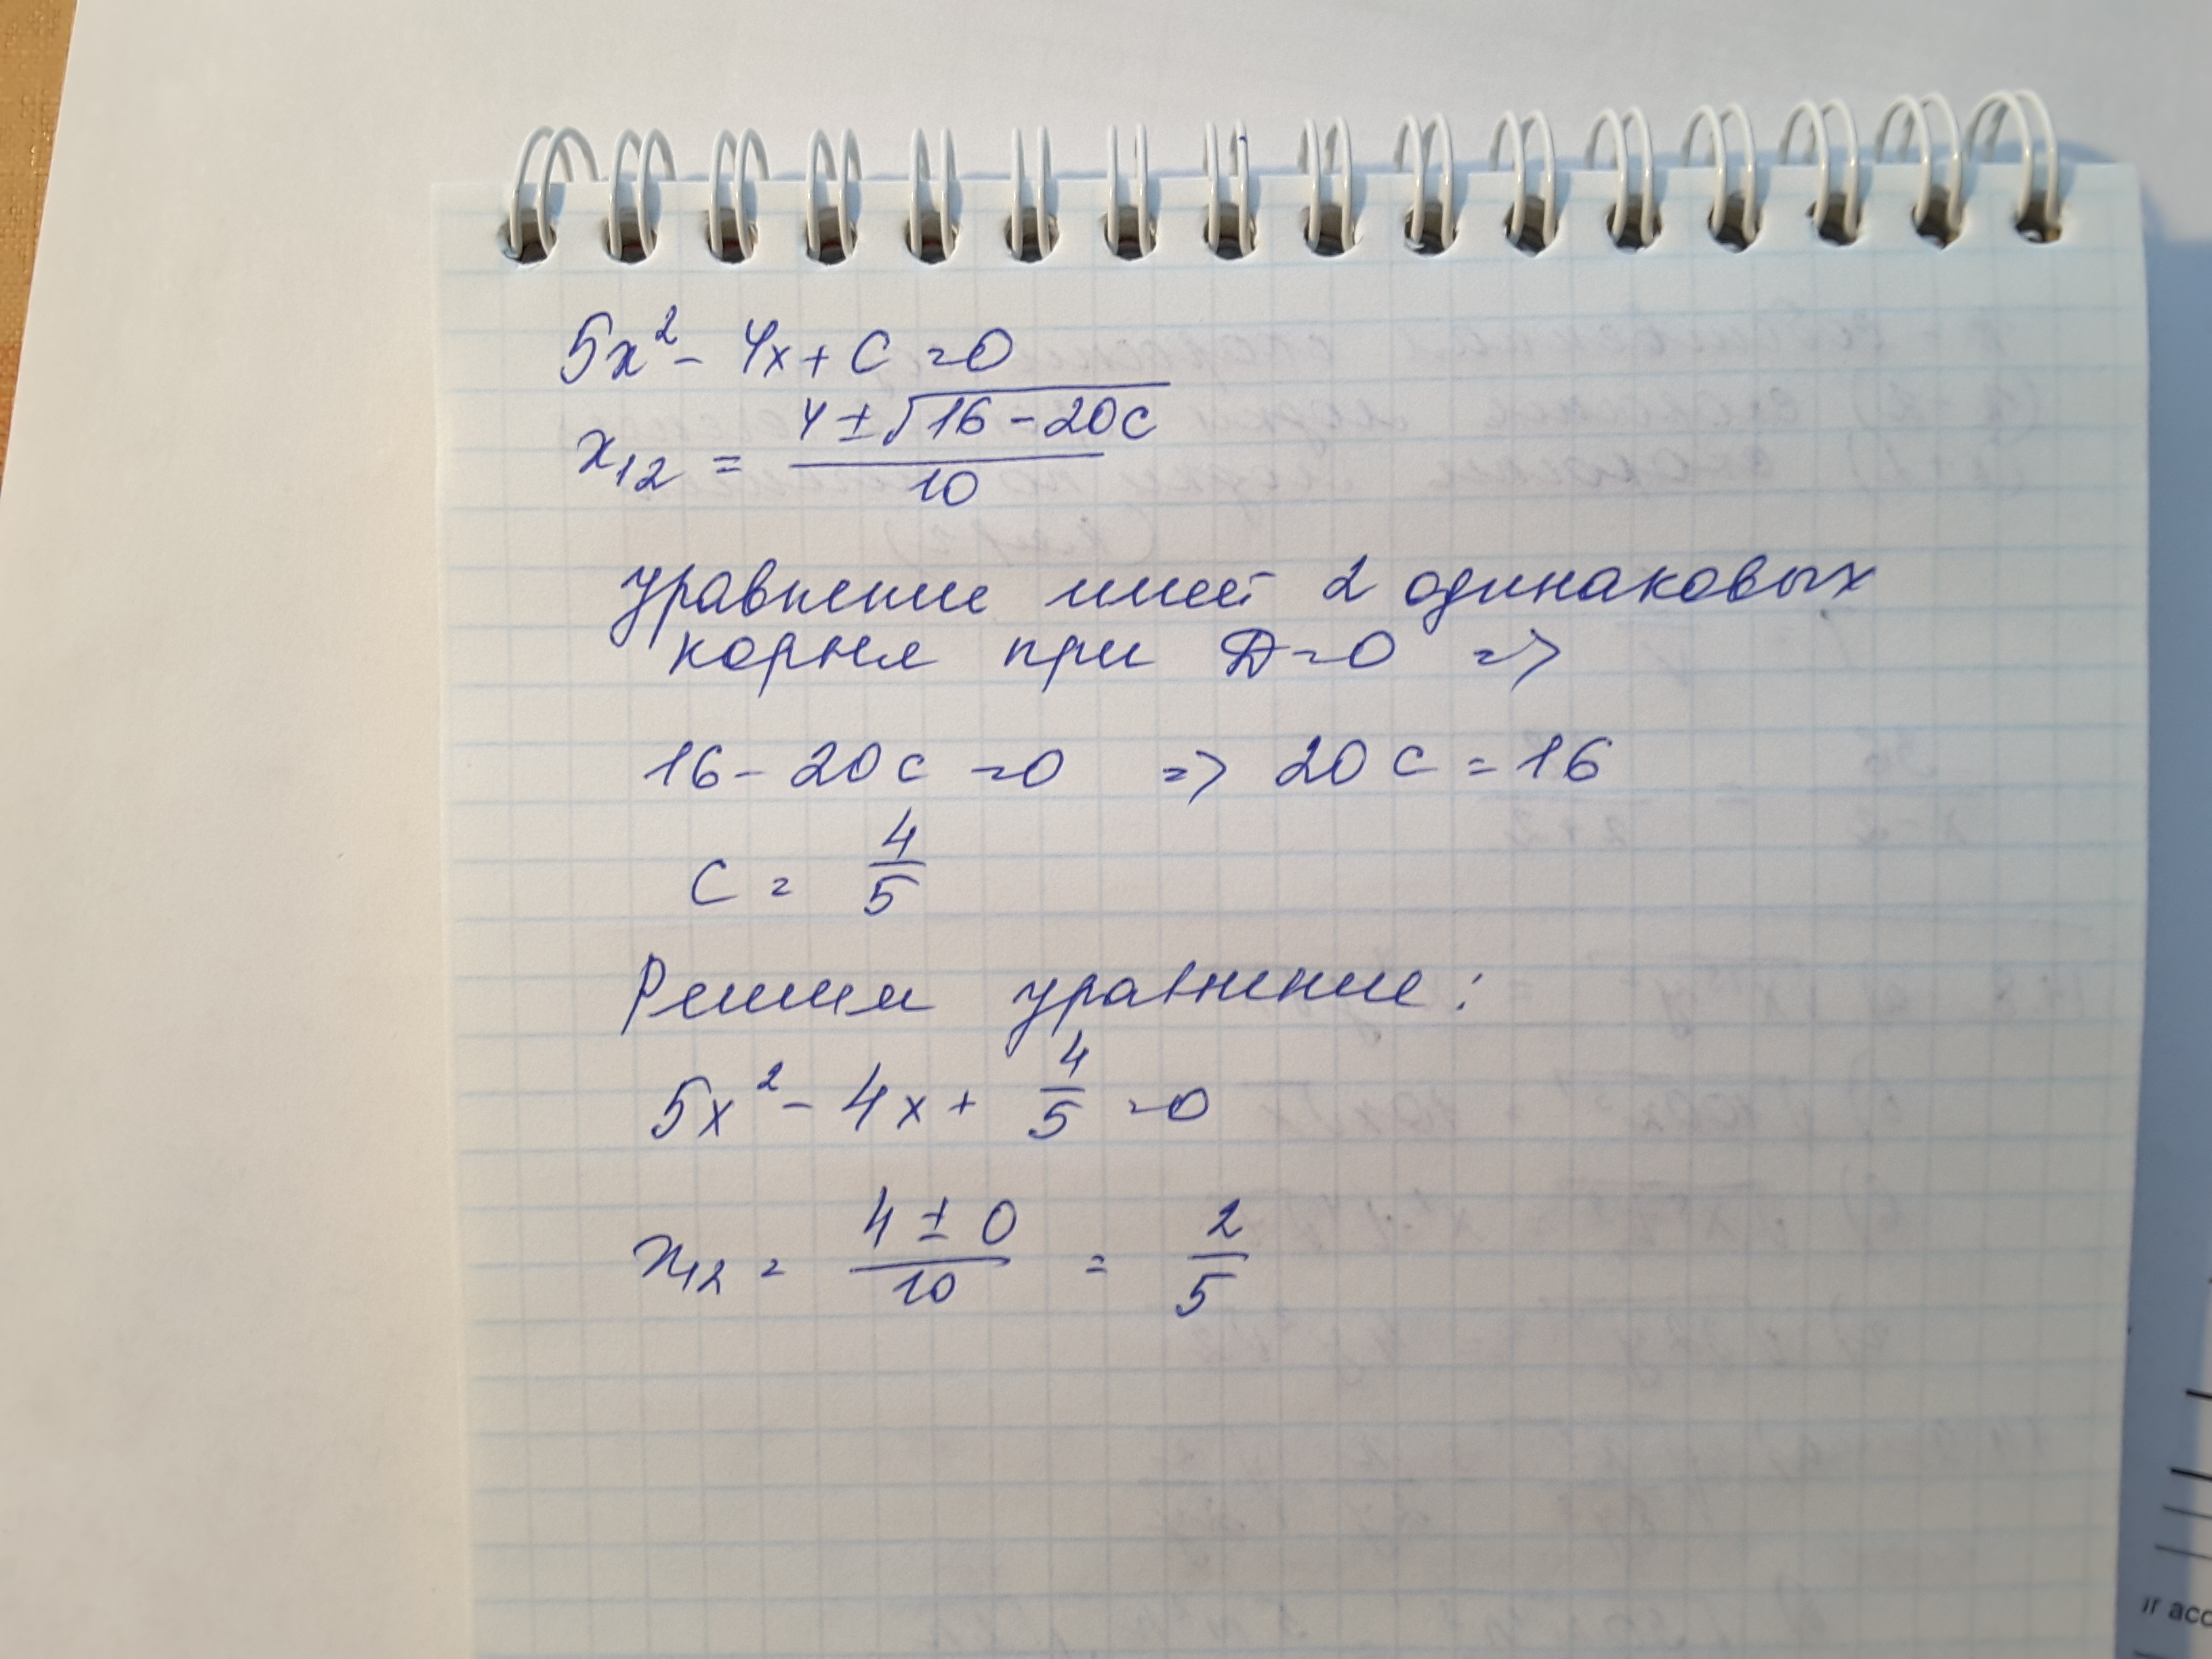 5x² - 4x + C = 0
x₁₂ = (4 ± √(16 - 20c)) / 10
уравнение имеет 2 одинаковых
корня при D = 0 =>
16 - 20c = 0 => 20c = 16
C = 4/5
Решим уравнение:
5x² - 4x + 4/5 = 0
x₁₂ = (4 ± 0)/10 = 2/5
ir acc